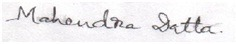 Mahendra Datta.